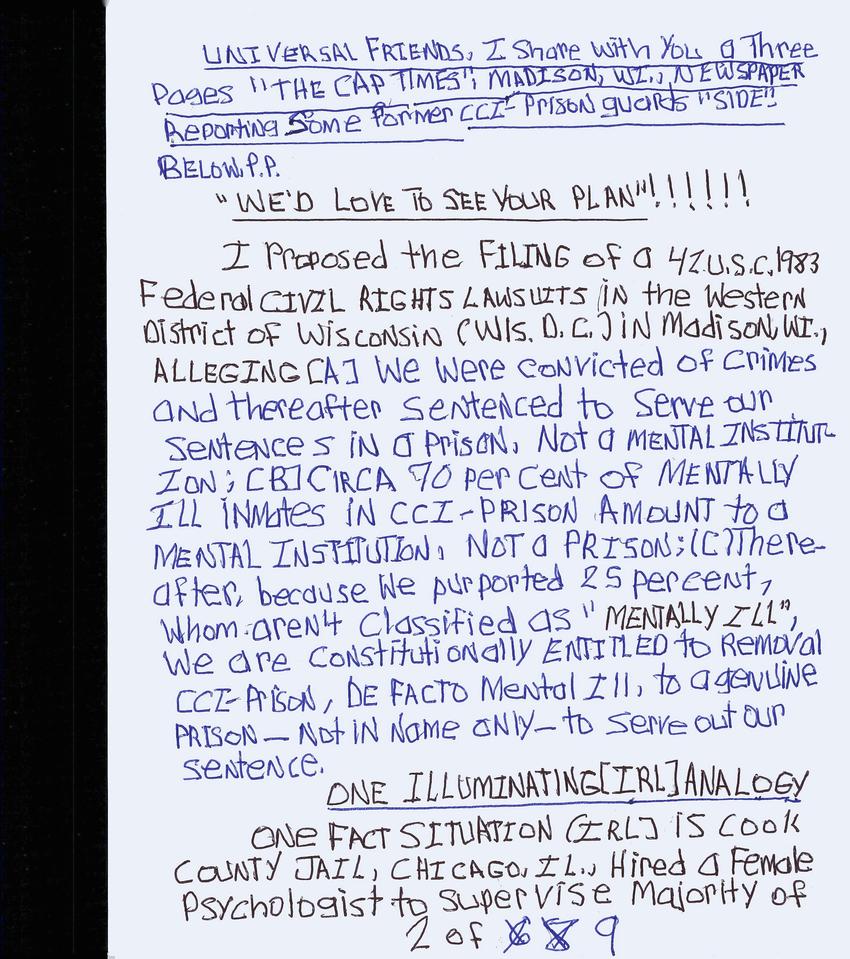 UNIVERSAL FRIENDS, I Share with You a Three
Pages "THE CAP TIMES", MADISON, WI., NEWSPAPER
Reporting Some former CCI-Prison guards "SIDE"
BELOW.P.P.
"WE'D LOVE TO SEE YOUR PLAN"!!!!!!
I Proposed the FILING of a 42 U.S.C.1983
Federal CIVIL RIGHTS LAWSUITS IN the Western
District of Wisconsin (WIS. D.C.) IN Madison, WI.,
ALLEGING [A] We Were convicted of crimes
and thereafter sentenced to serve our
sentences IN a Prison, Not a MENTAL INSTITUT-
ION; [B] CIRCA 70 per cent of MENTALLY
ILL INMates IN CCI-PRISON AMOUNT to a
MENTAL INSTITUTION, NOT a PRISON; (C) There-
after, because We purported 25 percent,
Whom aren't classified as "MENTALLY ILL",
We are constitutionally ENTITLED to Removal
CCI-Prison, DE FACTO Mental Ill, to a genuine
PRISON — Not IN Name ONLY — to serve out our
sentence.
ONE ILLUMINATING [IRL] ANALOGY
ONE FACT SITUATION (IRL] IS COOK
COUNTY JAIL, CHICAGO, IL., Hired a Female
Psychologist to supervise Majority of
2 of 9